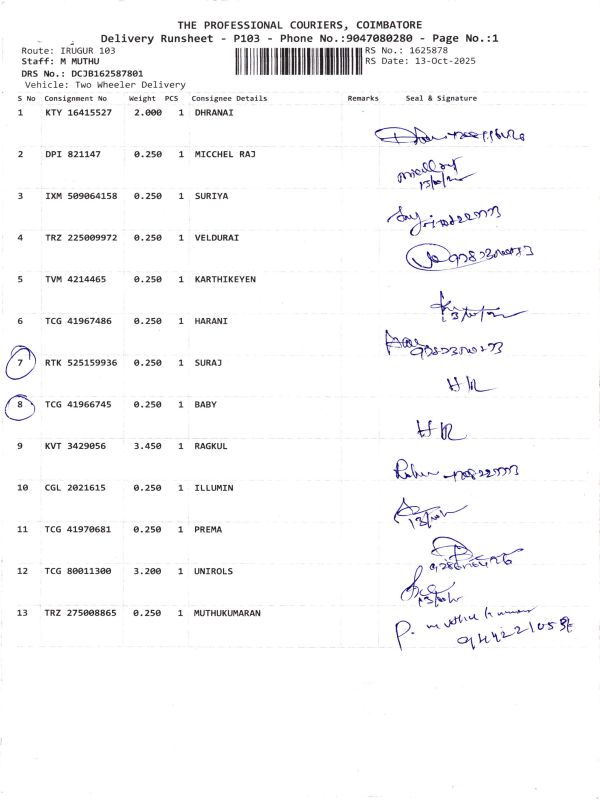 THE PROFESSIONAL COURIERS, COIMBATORE
Delivery Runsheet - P103 - Phone No.:9047080280 - Page No.:1
Route: IRUGUR 103 RS No.: 1625878
Staff: M MUTHU RS Date: 13-Oct-2025
DRS No.: DCJB162587801
Vehicle: Two Wheeler Delivery
S No Consignment No Weight PCS Consignee Details Remarks Seal & Signature
1 KTY 16415527 2.000 1 DHRANAI
2 DPI 821147 0.250 1 MICCHEL RAJ
3 IXM 509064158 0.250 1 SURIYA
4 TRZ 225009972 0.250 1 VELDURAI
5 TVM 4214465 0.250 1 KARTHIKEYEN
6 TCG 41967486 0.250 1 HARANI
7 RTK 525159936 0.250 1 SURAJ
8 TCG 41966745 0.250 1 BABY
9 KVT 3429056 3.450 1 RAGKUL
10 CGL 2021615 0.250 1 ILLUMIN
11 TCG 41970681 0.250 1 PREMA
12 TCG 80011300 3.200 1 UNIROLS
13 TRZ 275008865 0.250 1 MUTHUKUMARAN
P. muthu kumaran